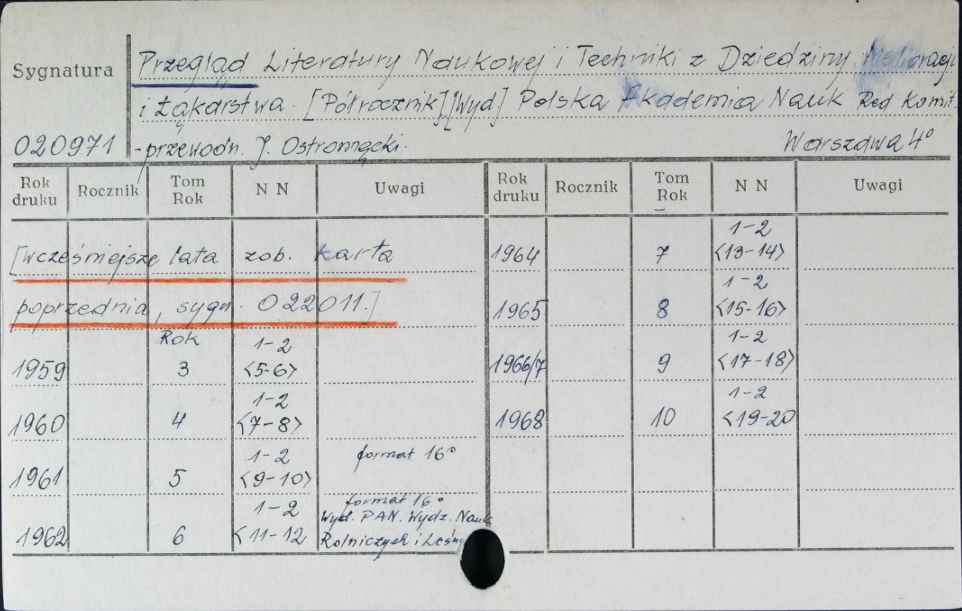 Sygnatura
Przegląd Literatury Naukowej i Techniki z Dziedziny Melioracji
i Łąkarstwa. [Półrocznik][Wyd] Polska Akademia Nauk Red Komit.
020971 -przewodn. J. Ostromęcki. Warszawa 4°
Rok druku Rocznik Tom Rok N N Uwagi Rok druku Rocznik Tom Rok N N Uwagi
[wcześniejsze lata zob. karta
poprzednia, sygn. 022011.]
Rok
1959 3 1-2 <5-6>
1960 4 1-2 <7-8>
1961 5 1-2 <9-10> format 16°
1962 6 1-2 <11-12 format 16°
Wyd. PAN. Wydz. Nauk
Rolniczych i Leśn
1964 7 1-2 <13-14>
1965 8 1-2 <15-16>
1966/7 9 1-2 <17-18>
1968 10 1-2 <19-20